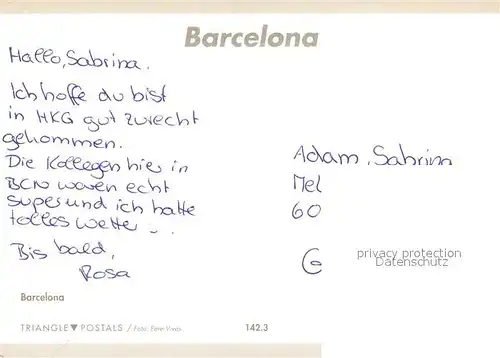 Barcelona
Hallo, Sabrina.
Ich hoffe du bist
in HKG gut zurecht
gekommen.
Die Kollegen hier in
BCN waren echt
super und ich hatte
tolles Wetter...
Bis bald,
Rosa
Adam, Sabrin
Mel
60
G
privacy protection
Datenschutz
Barcelona
TRIANGLE▼POSTALS / Foto: Pere Vivas
142.3